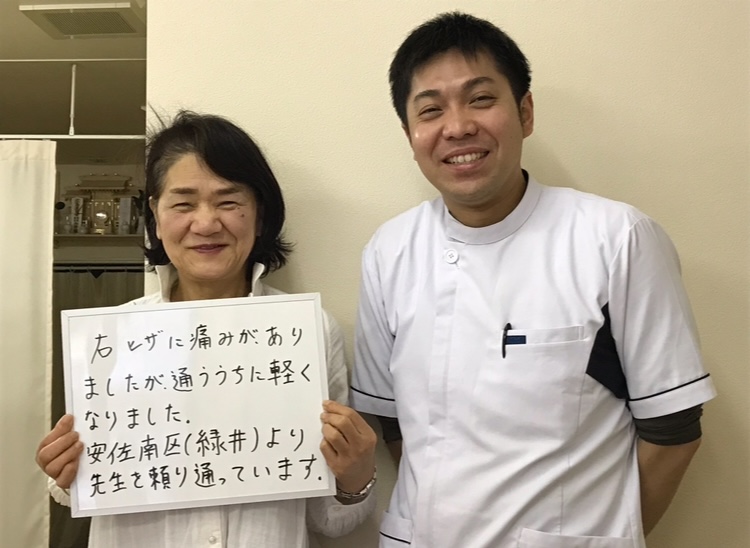 右ヒザに痛みが、あり
ましたが、通ううちに軽く
なりました.
安佐南区(緑井)より
先生を頼り通っています.